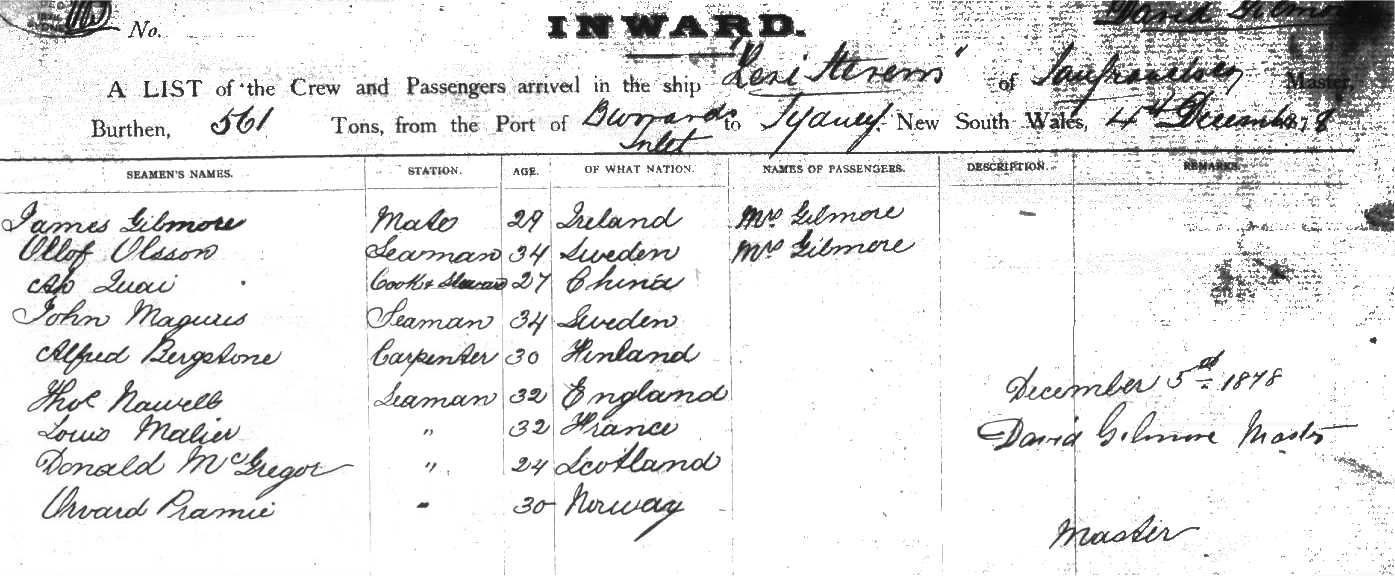 No. INWARD. David Gilmore
A LIST of the Crew and Passengers arrived in the ship "Levi Stevens" of San Francisco, Master,
Burthen, 561 Tons, from the Port of Burrard Inlet to Sydney, New South Wales, 4th December 1878
SEAMEN'S NAMES. STATION. AGE. OF WHAT NATION. NAMES OF PASSENGERS. DESCRIPTION. REMARKS.
James Gilmore Mate 29 Ireland Mrs Gilmore
Ollof Olsson Seaman 34 Sweden Mrs Gilmore
Ah Quai Cook & Steward 27 China
John Magnus Seaman 34 Sweden
Alfred Bergstone Carpenter 30 Finland
Thos Nawell Seaman 32 England December 5th 1878
Louis Malier " 32 France David Gilmore Master
Donald McGregor " 24 Scotland
Orvard Pramie " 30 Norway
Master